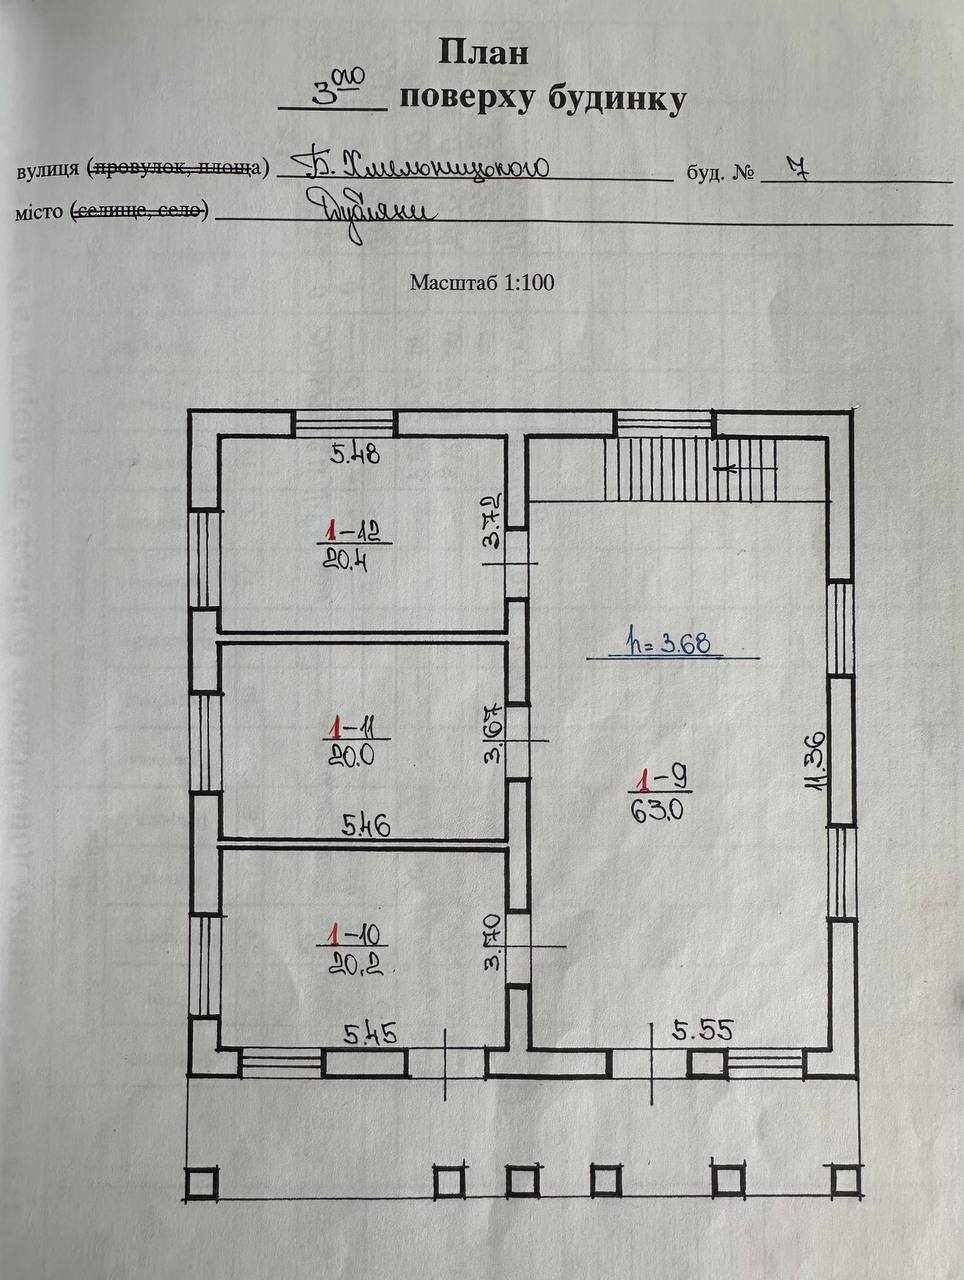 План
3ого поверху будинку
вулиця (провулок, площа) Б. Хмельницького буд. № 7
місто (селище, село) Дубляни
Масштаб 1:100
5.48
3.72
1-12
20.4
h= 3.68
3.67
1-11
20.0
11.36
1-9
63.0
5.46
3.70
1-10
20.2
5.45
5.55